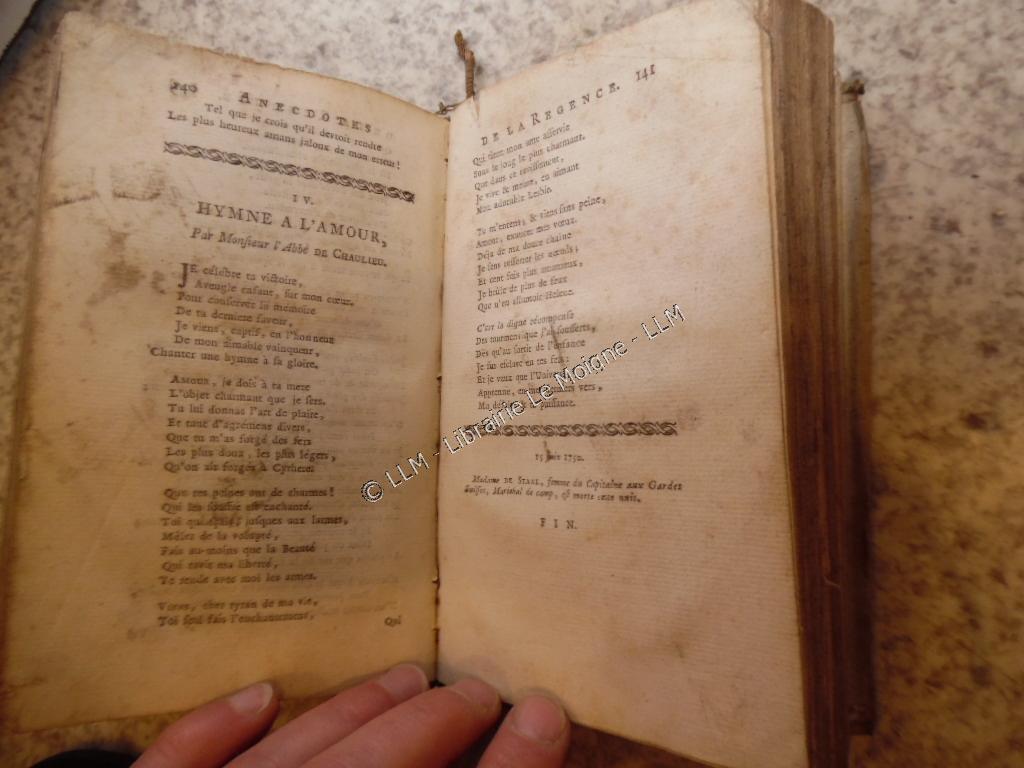 140 ANECDOTES
Tel que je crois qu'il devroit rendre
Les plus heureux amans jaloux de mon erreur!
IV.
HYMNE A L'AMOUR,
Par Monsieur l'Abbé DE CHAULIEU.
JE célebre ta victoire,
Aveugle enfant, sur mon cœur.
Pour conserver la mémoire
De ta derniere faveur,
Je viens, captif, en l'honneur
De mon aimable vainqueur,
Chanter une hymne à sa gloire.
AMOUR, je dois à ta mere
L'objet charmant que je sers.
Tu lui donnas l'art de plaire,
Et tant d'agrémens divers,
Que tu m'as forgé des fers
Les plus doux, les plus légers,
Qu'on ait forgés à Cythere.
Que tes peines ont de charmes!
Qui les souffre est enchanté.
Toi qui, jusques aux larmes,
Mêlez de la volupté,
Fais au-moins que la Beauté
Qui ravit ma liberté,
Te rende avec moi les armes.
Viens, cher tyran de ma vie,
Toi seul fais l'enchantement,
Qui
DE LA REGENCE. 141
Qui tient mon ame asservie
Sous le joug le plus charmant.
Que dans ce ravissement,
Je vive & meure, en aimant
Mon adorable Lesbie.
Tu m'entens, & viens sans peine,
Amour, exaucer mes vœux.
Déja de ma douce chaîne
Je sens resserrer les nœuds;
Et cent fois plus amoureux,
Je brûle de plus de feux
Que n'en allumoit Helene.
C'est la digne récompense
Des tourmens que j'ai soufferts,
Dès qu'au sortir de l'enfance
Je fus esclave en tes fers:
Et je veux que l'Univers
Apprenne, en mes vers,
Ma & ta puissance.
15 1750.
Madame DE STAAL, femme du Capitaine aux Gardes
Suisses, Maréchal de camp, est morte cette nuit.
FIN.
© LLM - Librairie Le Moigne - LLM